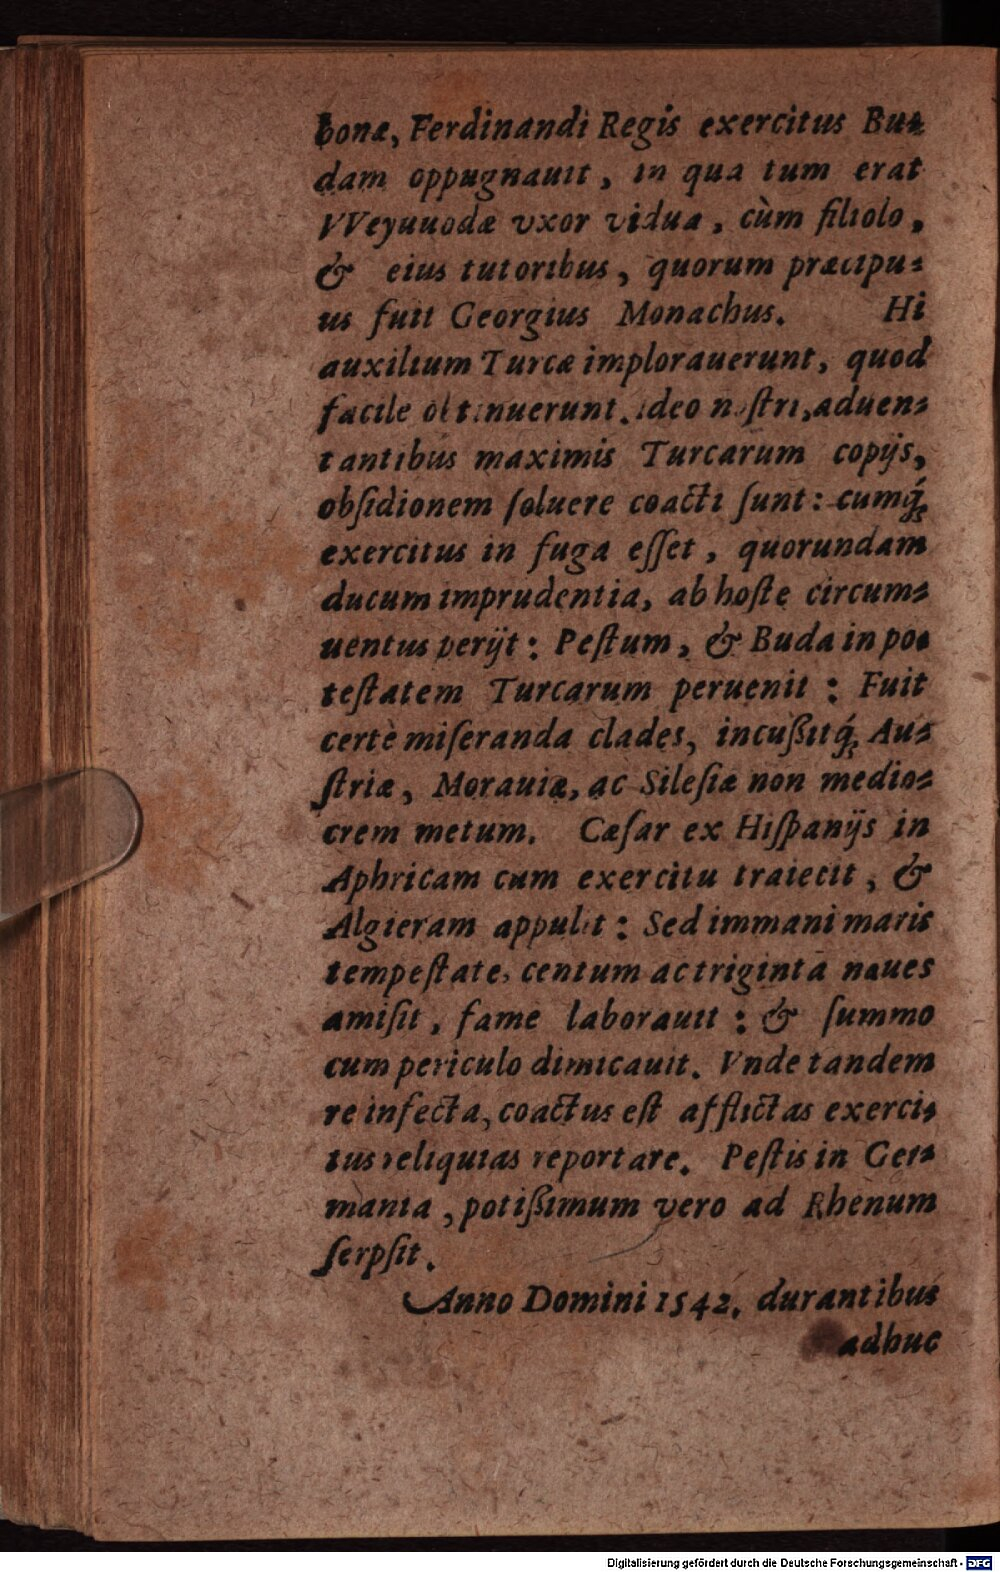 bonæ, Ferdinandi Regis exercitus Bu⸗
dam oppugnauit, in qua tum erat
VVeyuuodæ vxor vidua, cùm filiolo,
& eius tutoribus, quorum præcipu⸗
us fuit Georgius Monachus. Hi
auxilium Turcæ implorauerunt, quod
facile obtinuerunt. ideo nostri, aduen⸗
tantibus maximis Turcarum copijs,
obſidionem ſoluere coacti ſunt: cumq́;
exercitus in fuga eſſet, quorundam
ducum imprudentia, ab hoſte circum⸗
uentus perijt: Peſtum, & Buda in po⸗
teſtatem Turcarum peruenit: Fuit
certè miſeranda clades, incußitq́; Au⸗
ſtriæ, Morauiæ, ac Sileſiæ non medio⸗
crem metum. Cæſar ex Hiſpanijs in
Aphricam cum exercitu traiecit, &
Algieram appulit: Sed immani maris
tempeſtate, centum ac triginta naues
amiſit, fame laborauit: & ſummo
cum periculo dimicauit. Vnde tandem
re infecta, coactus eſt afflictas exerci⸗
tus reliquias reportare. Peſtis in Ger⸗
mania, potißimum vero ad Rhenum
ſerpſit.
Anno Domini 1542. durantibus
adhuc
Digitalisierung gefördert durch die Deutsche Forschungsgemeinschaft - DFG